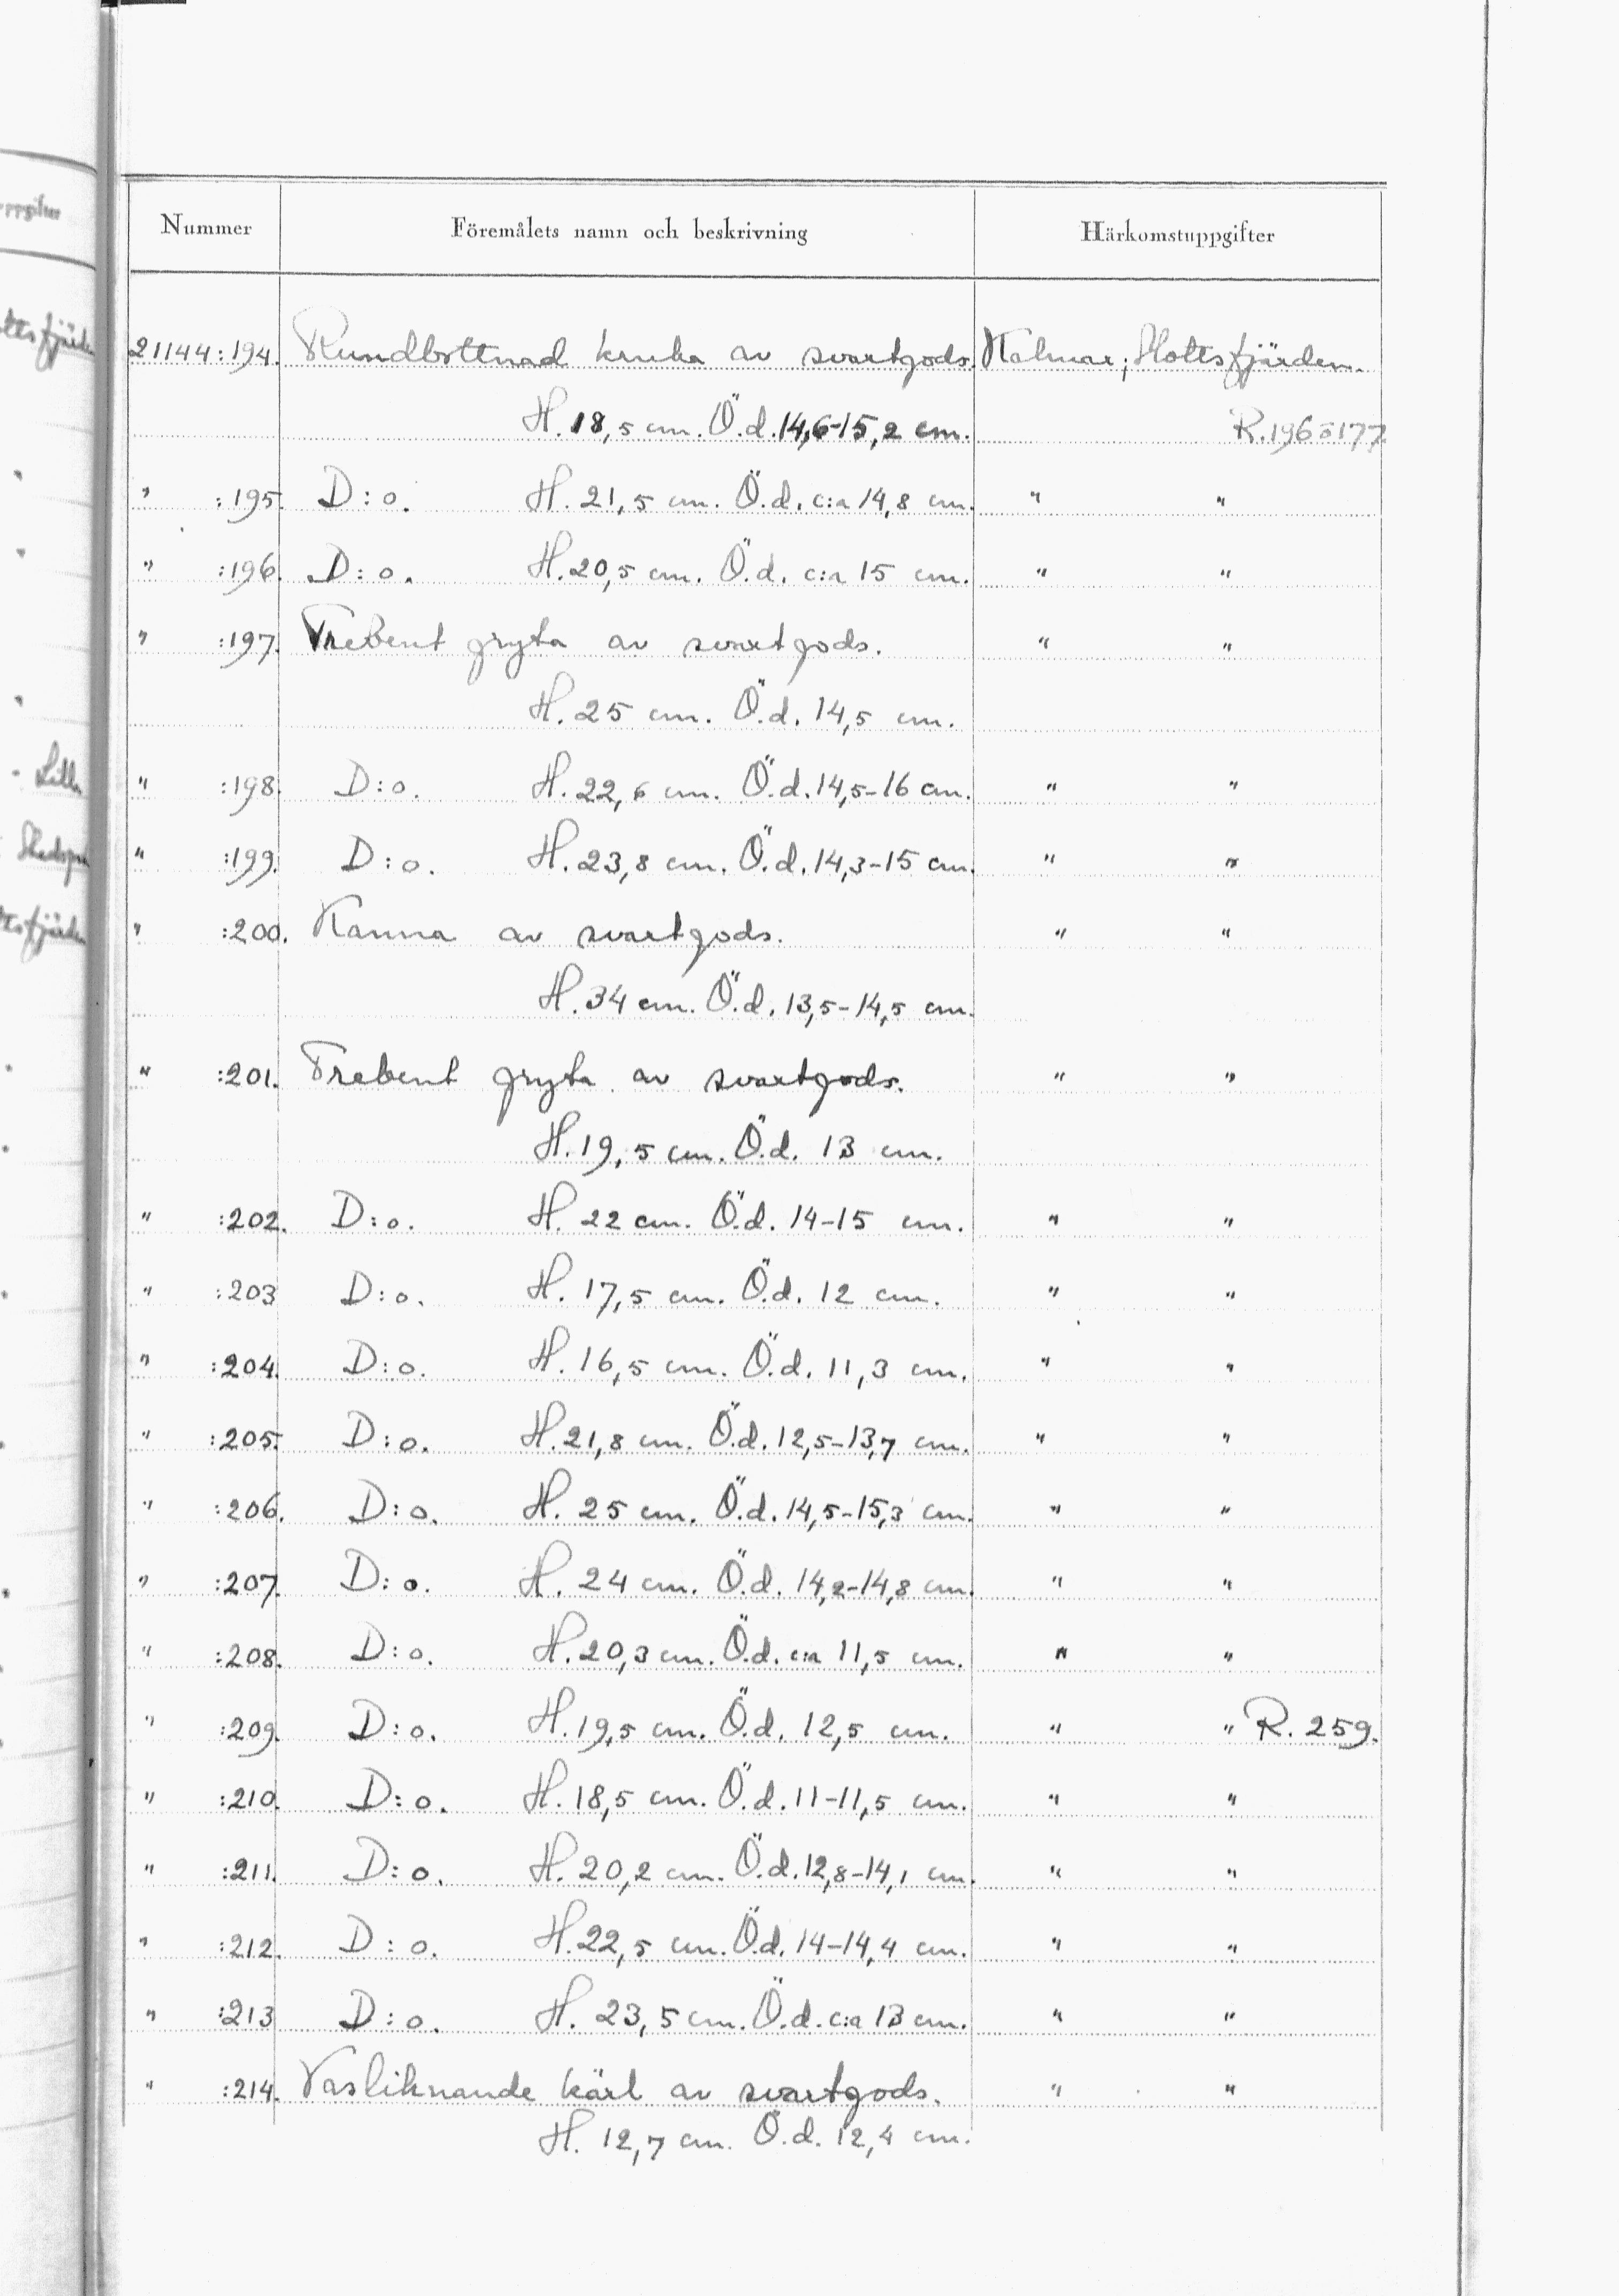 Nummer Föremålets namn och beskrivning Härkomstuppgifter
21144:194. Rundbottnad kruka av svartgods. Kalmar; Slottsfjärden.
H. 18,5 cm. Ö.d. 14,6-15,2 cm. R.1965177
" :195. D:o. H. 21,5 cm. Ö.d. c:a 14,8 cm. " "
" :196. D:o. H. 20,5 cm. Ö.d. c:a 15 cm. " "
" :197. Trebent gryta av svartgods. " "
H. 25 cm. Ö.d. 14,5 cm.
" :198. D:o. H. 22,6 cm. Ö.d. 14,5-16 cm. " "
" :199. D:o. H. 23,8 cm. Ö.d. 14,3-15 cm. " "
" :200. Kanna av svartgods. " "
H. 34 cm. Ö.d. 13,5-14,5 cm.
" :201. Trebent gryta av svartgods. " "
H. 19,5 cm. Ö.d. 13 cm.
" :202. D:o. H. 22 cm. Ö.d. 14-15 cm. " "
" :203 D:o. H. 17,5 cm. Ö.d. 12 cm. " "
" :204. D:o. H. 16,5 cm. Ö.d. 11,3 cm. " "
" :205. D:o. H. 21,8 cm. Ö.d. 12,5-13,7 cm. " "
" :206. D:o. H. 25 cm. Ö.d. 14,5-15,3 cm. " "
" :207. D:o. H. 24 cm. Ö.d. 14,2-14,8 cm. " "
" :208. D:o. H. 20,3 cm. Ö.d. c:a 11,5 cm. " "
" :209. D:o. H. 19,5 cm. Ö.d. 12,5 cm. " " R. 259.
" :210. D:o. H. 18,5 cm. Ö.d. 11-11,5 cm. " "
" :211. D:o. H. 20,2 cm. Ö.d. 12,8-14,1 cm. " "
" :212. D:o. H. 22,5 cm. Ö.d. 14-14,4 cm. " "
" :213 D:o. H. 23,5 cm. Ö.d. c:a 13 cm. " "
" :214. Vasliknande kärl av svartgods. " "
H. 12,7 cm. Ö.d. 12,4 cm.